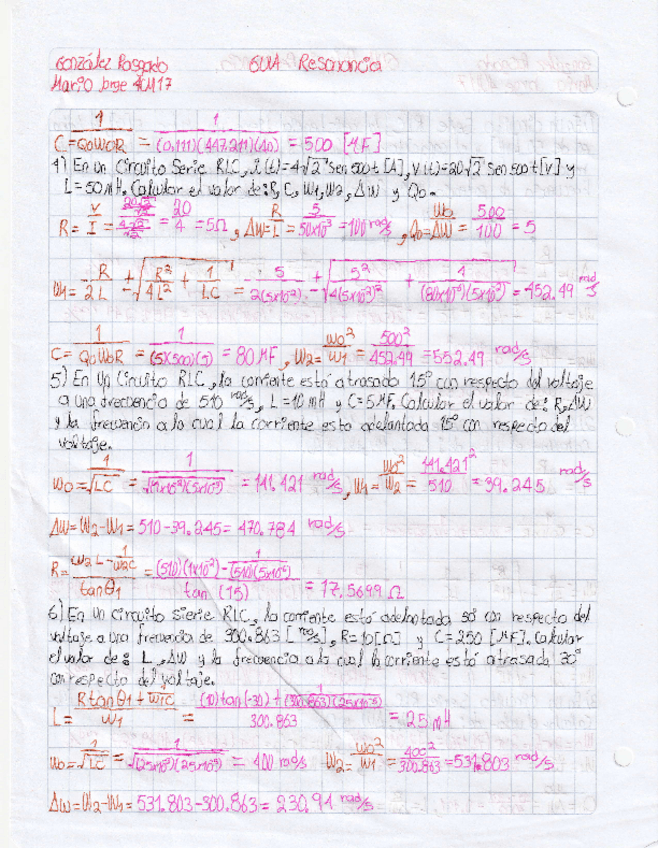 González Rasgado GUIA Resonancia
Mario Jorge 4CM17
C = 1/QoWoR = 1/(0.111)(447.211)(40) = 500 [MF]
4) En un Circuito Serie RLC, i(t)=4√2 Sen 500t [A], v(t)=20√2 Sen 500t [V] y
L=50mH. Calcular el valor de: R, C, W1, W2, ΔW y Qo.
R = V/I = (20√2/√2)/(4√2/√2) = 20/4 = 5Ω, ΔW = R/L = 5/50x10⁻³ = 100 rad/s, Qo = Wo/ΔW = 500/100 = 5
W1 = -R/2L +- √(R²/4L² + 1/LC) = - 5/2(5x10⁻²) +- √(5²/4(5x10⁻²)² + 1/(80x10⁻⁶)(5x10⁻²)) = 452.49 rad/s
C = 1/QoWoR = 1/(5)(500)(5) = 80 MF, W2 = Wo²/W1 = 500²/452.49 = 552.49 rad/s
5) En Un Circuito RLC, la corriente está atrasado 15° con respecto del voltaje
a una frecuencia de 510 rad/s, L=10 mH y C=5MF. Calcular el valor de: R, ΔW
y la frecuencia a la cual la corriente esta adelantada 15° con respecto del
voltaje.
Wo = 1/√LC = 1/√(1x10⁻²)(5x10⁻³) = 141.421 rad/s, W1 = Wo²/W2 = 141.421²/510 = 39.245 rad/s
ΔW = W2-W1 = 510-39.245 = 470.784 rad/s
R = (W2L - 1/W2C)/tanθ1 = ((510)(1x10⁻²) - 1/(510)(5x10⁻⁶))/tan (15) = 17.5699 Ω
6) En Un circuito Sierie RLC, la corriente está adelantada 30 con respecto del
voltaje a una frecuencia de 300.863 [rad/s], R=10[Ω] y C=250 [MF]. Calcular
el valor de: L, ΔW y la frecuencia a la cual la corriente está atrasada 30°
con respecto del voltaje.
L = (Rtanθ1 + 1/W1C)/W1 = ((10)tan(-30) + 1/(300.863)(25x10⁻⁵))/300.863 = 25 mH
Wo = 1/√LC = 1/√(25x10⁻³)(25x10⁻⁵) = 400 rad/s W2 = Wo²/W1 = 400²/300.863 = 531.803 rad/s
ΔW = W2-W1 = 531.803-300.863 = 230.94 rad/s